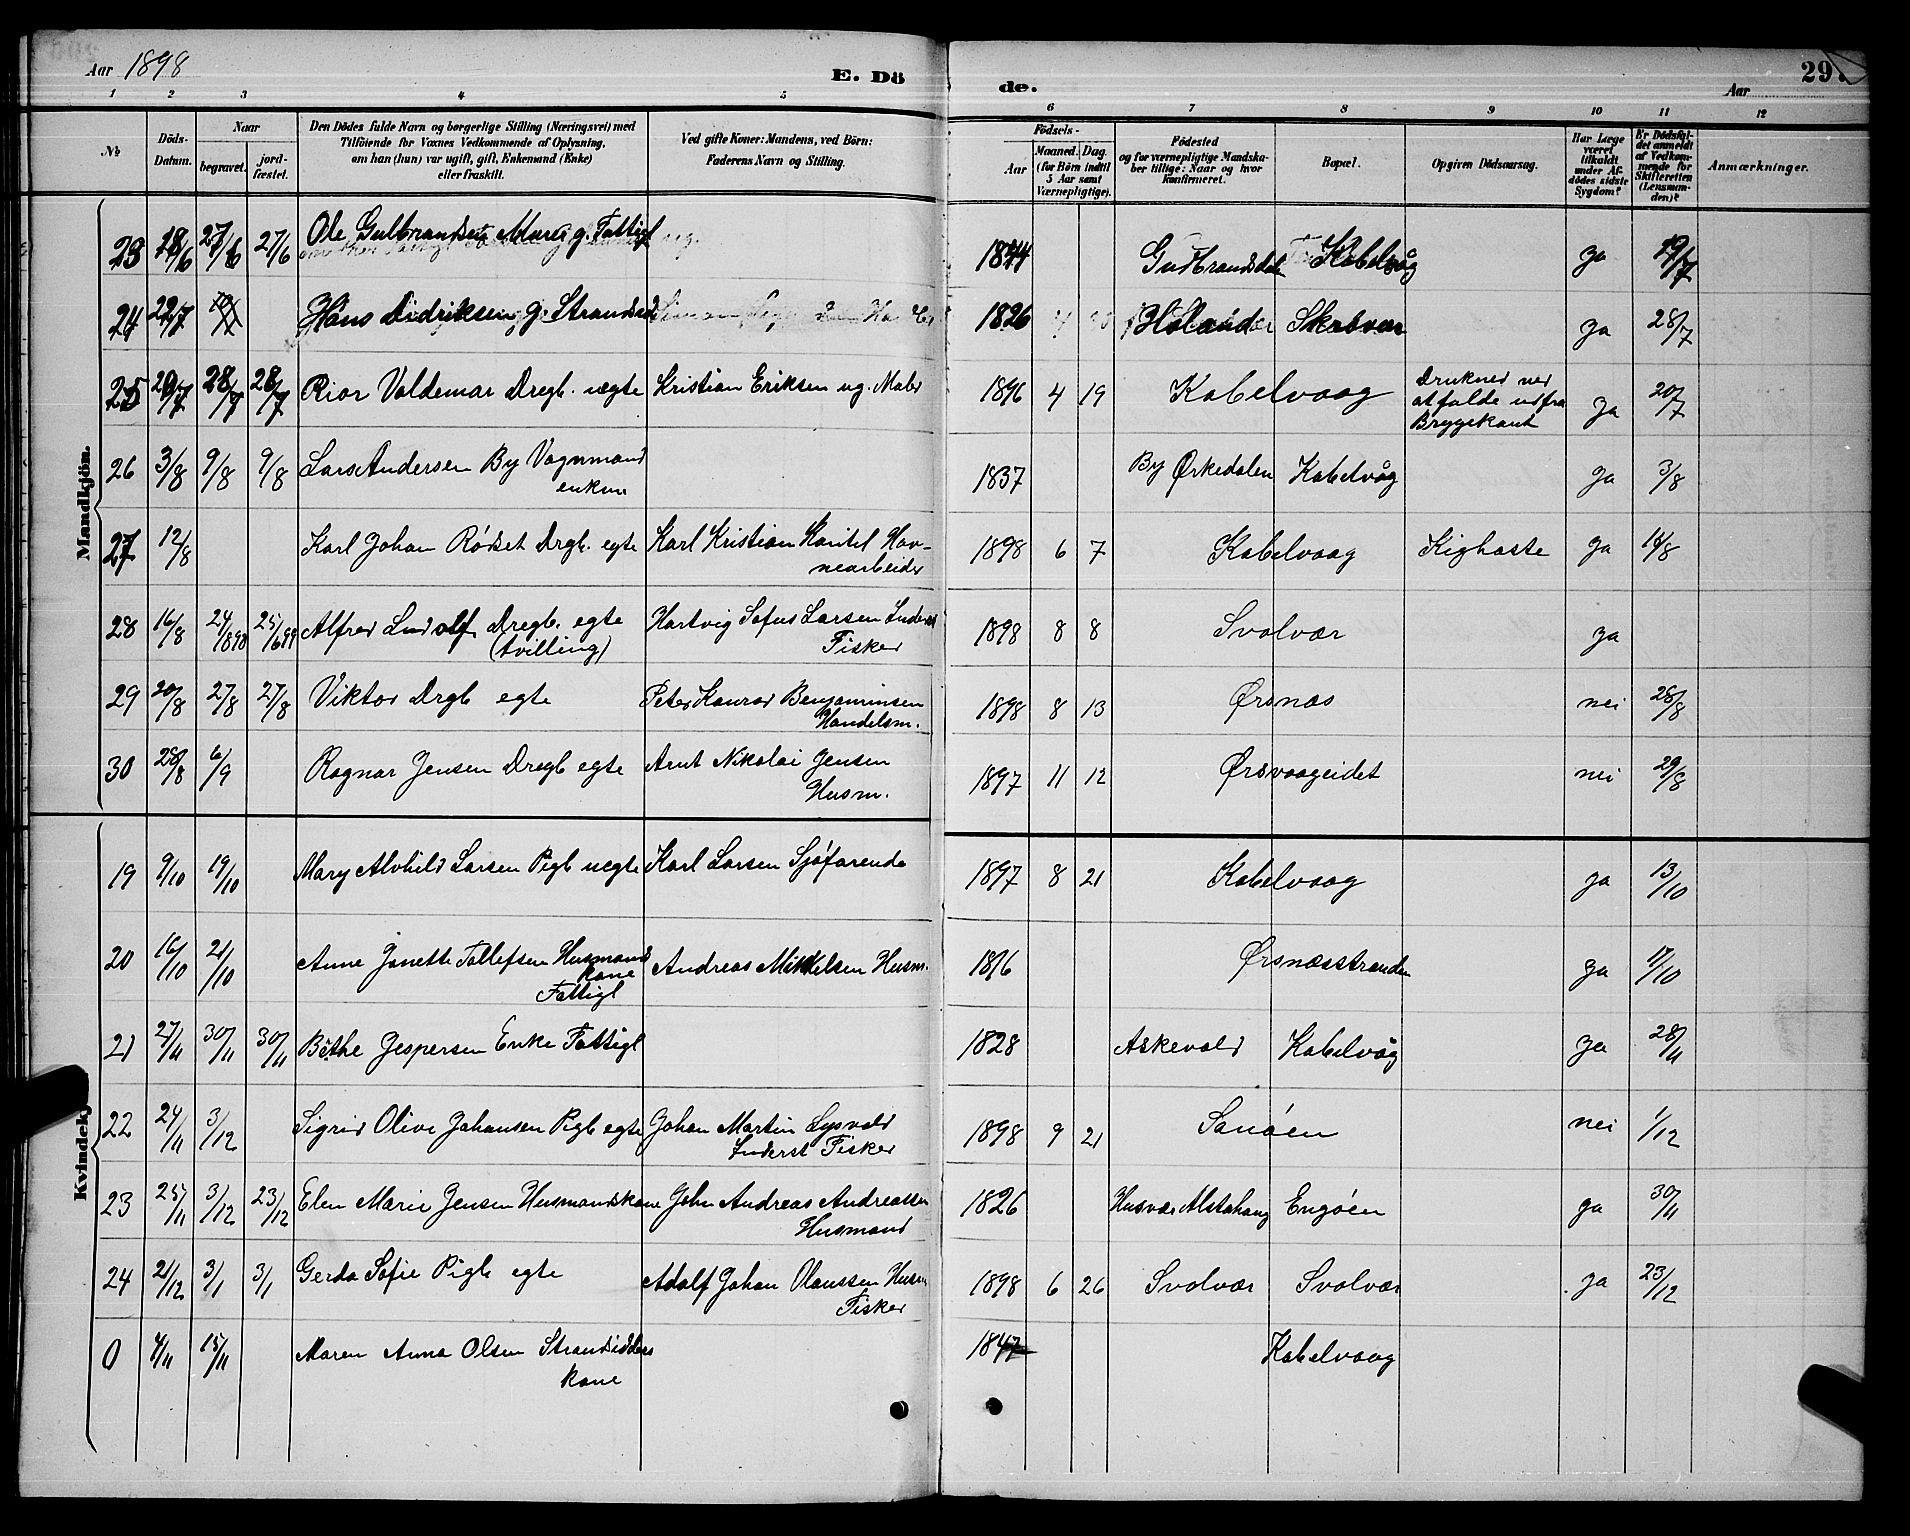 Aar 1898
E. Dö
de.
297.
Aar
1 2 3 4 5 6 7 8 9 10 11 12
№
Döds-Datum.
Naar
begravet.
jord-fæstet.
Den Dödes fulde Navn og borgerlige Stilling (Næringsvei) med
Tilföiende for Voxnes Vedkommende af Oplysning,
om han (hun) var ugift, gift, Enkemand (Enke)
eller fraskilt.
Ved gifte Koner: Mandens, ved Börn:
Faderens Navn og Stilling.
Födsels-
Aar
Maaned. Dag.
(for Börn indtil
5 Aar samt
Værnepligtige).
Födested
og for værnepligtige Mandska-
ber tillige: Naar og hvor
konfirmeret.
Bopæl.
Opgiven Dödsaarsag.
Har Læge
været
tilkaldt
under Af-
dödes sidste
Sygdom?
Er Dödsfal-
det anmeldt
af Vedkom-
mende for
Skifteretten
(Lensman-
den)?
Anmærkninger.
Mandkjön.
23 18/6 27/6 27/6 Ole Gulbrandsen Murag g. Fattigl 1844 Gudbrandsdal Kabelvåg ja 19/7
24 22/7 Hans Didriksen g. Strandsid 1826 Skroven ja 28/7
25 20/7 28/7 28/7 Rior Valdemar Dregb. uegte Kristian Eriksen ug. Maler 1896 4 19 Kabelvaag Druknet ved
at falde ud fra
Bryggekant ja 20/7
26 3/8 9/8 9/8 Lars Andersen By Vognmand
enkm 1837 By Ørkedalen Kabelvåg ja 3/8
27 12/8 Karl Johan Rödset Drgb. egte Karl Kristian Havtel Hav-
nearbeider 1898 6 7 Kabelvaag Kighoste ja 14/8
28 16/8 24/898 25/699 Alfred Ludolf Dregb. egte
(tvilling) Hartvig Sofus Larsen Inderst
Fisker 1898 8 8 Svolvær ja
29 20/8 27/8 27/8 Viktor Drgb egte Peter Konrad Benjaminsen
Handelsm. 1898 8 13 Ørsnæs nei 28/8
30 28/8 6/9 Ragnar Jensen Dregb egte Arnt Nikolai Jensen
Husm. 1897 11 12 Ørsvaageidet nei 29/8
Kvindekj
19 9/10 19/10 Mary Alvhild Larsen Pigb uegte Karl Larsen Sjöfarende 1897 8 21 Kabelvaag ja 13/10
20 16/10 21/10 Anne Janette Tollefsen Husmands
kone
Fattigl Andreas Mikkelsen Husm. 1816 Ørsnæsstranden ja 17/10
21 27/11 30/11 30/11 Bethe Jespersen Enke Fattigl 1828 Askevold Kabelvåg ja 28/11
22 24/11 3/12 Sigrid Olive Johansen Pigb egte Johan Martin Lysvold
Inderst Fisker 1898 9 21 Sanöen nei 1/12
23 25/11 3/12 23/12 Elen Marie Jensen Husmandskone John Andreas Andreassen
Husmand 1826 Husvær Alstahaug Engöen ja 30/11
24 21/12 3/1 3/1 Gerda Sofie Pigb egte Adolf Johan Olaussen Husm
Fisker 1898 6 26 Svolvær Svolvær ja 23/12
0 4/11 15/11 Maren Anna Olsen Strandsidders
kone 1847 Kabelvaag